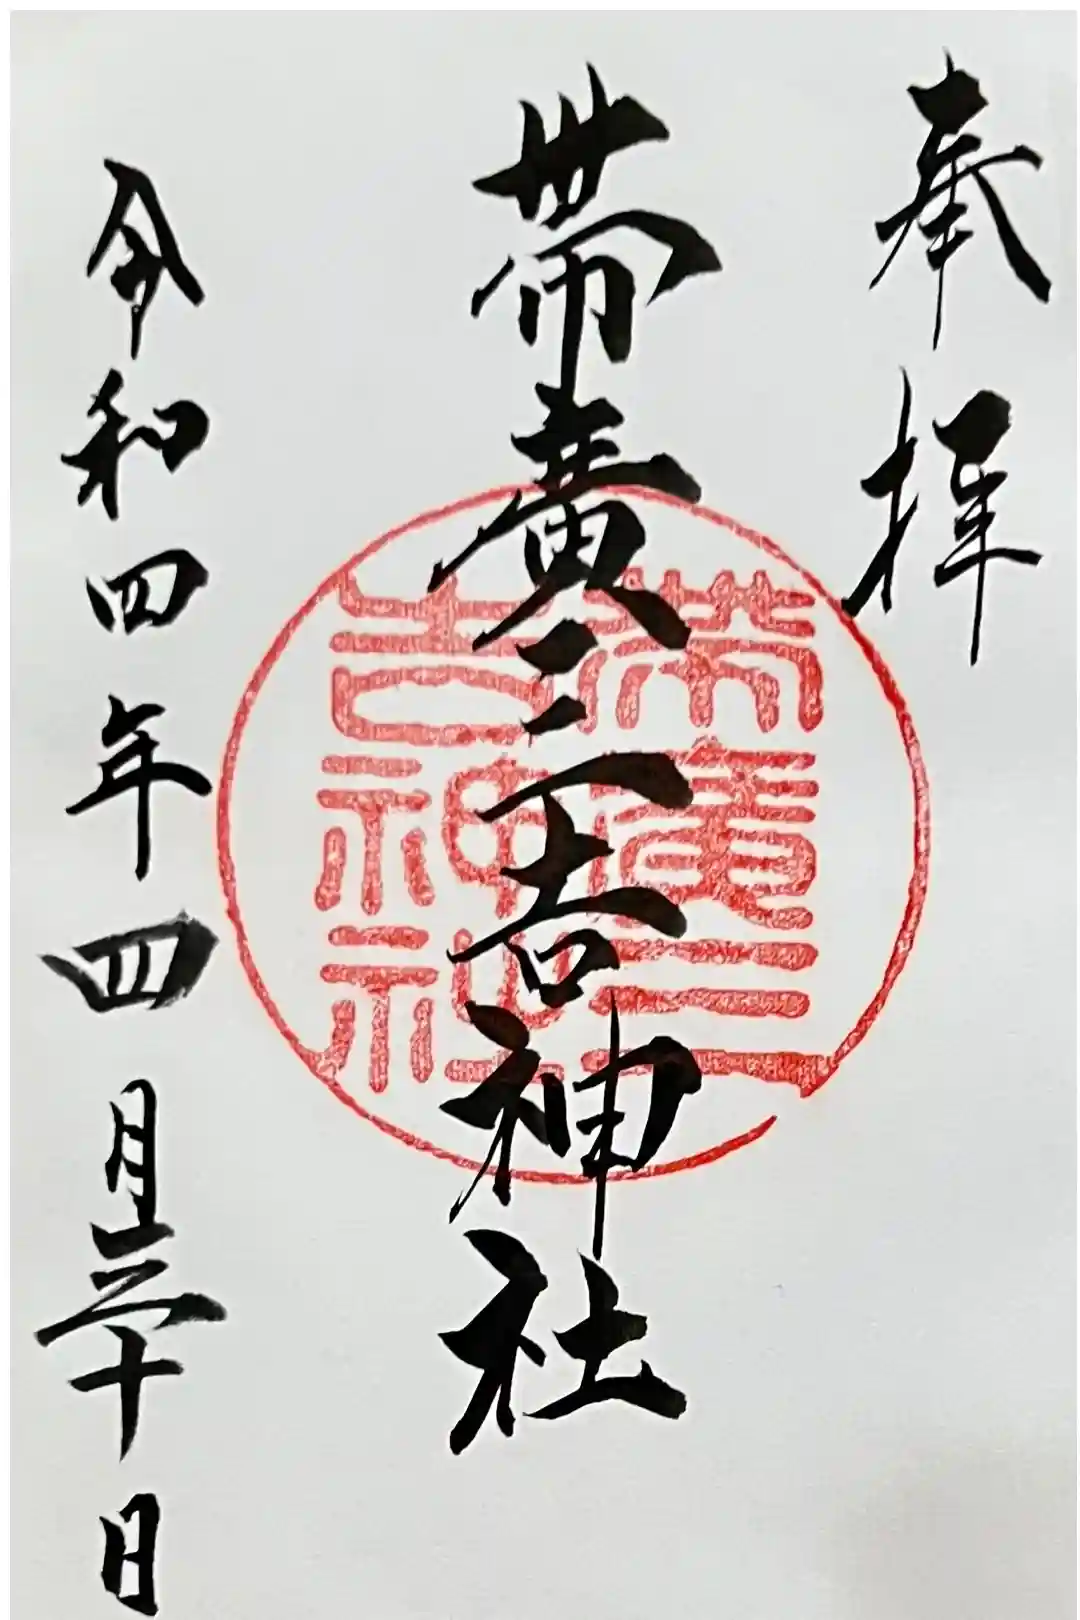 奉拝
帯廣三吉神社
帯廣三
吉神社
令和四年四月三十日